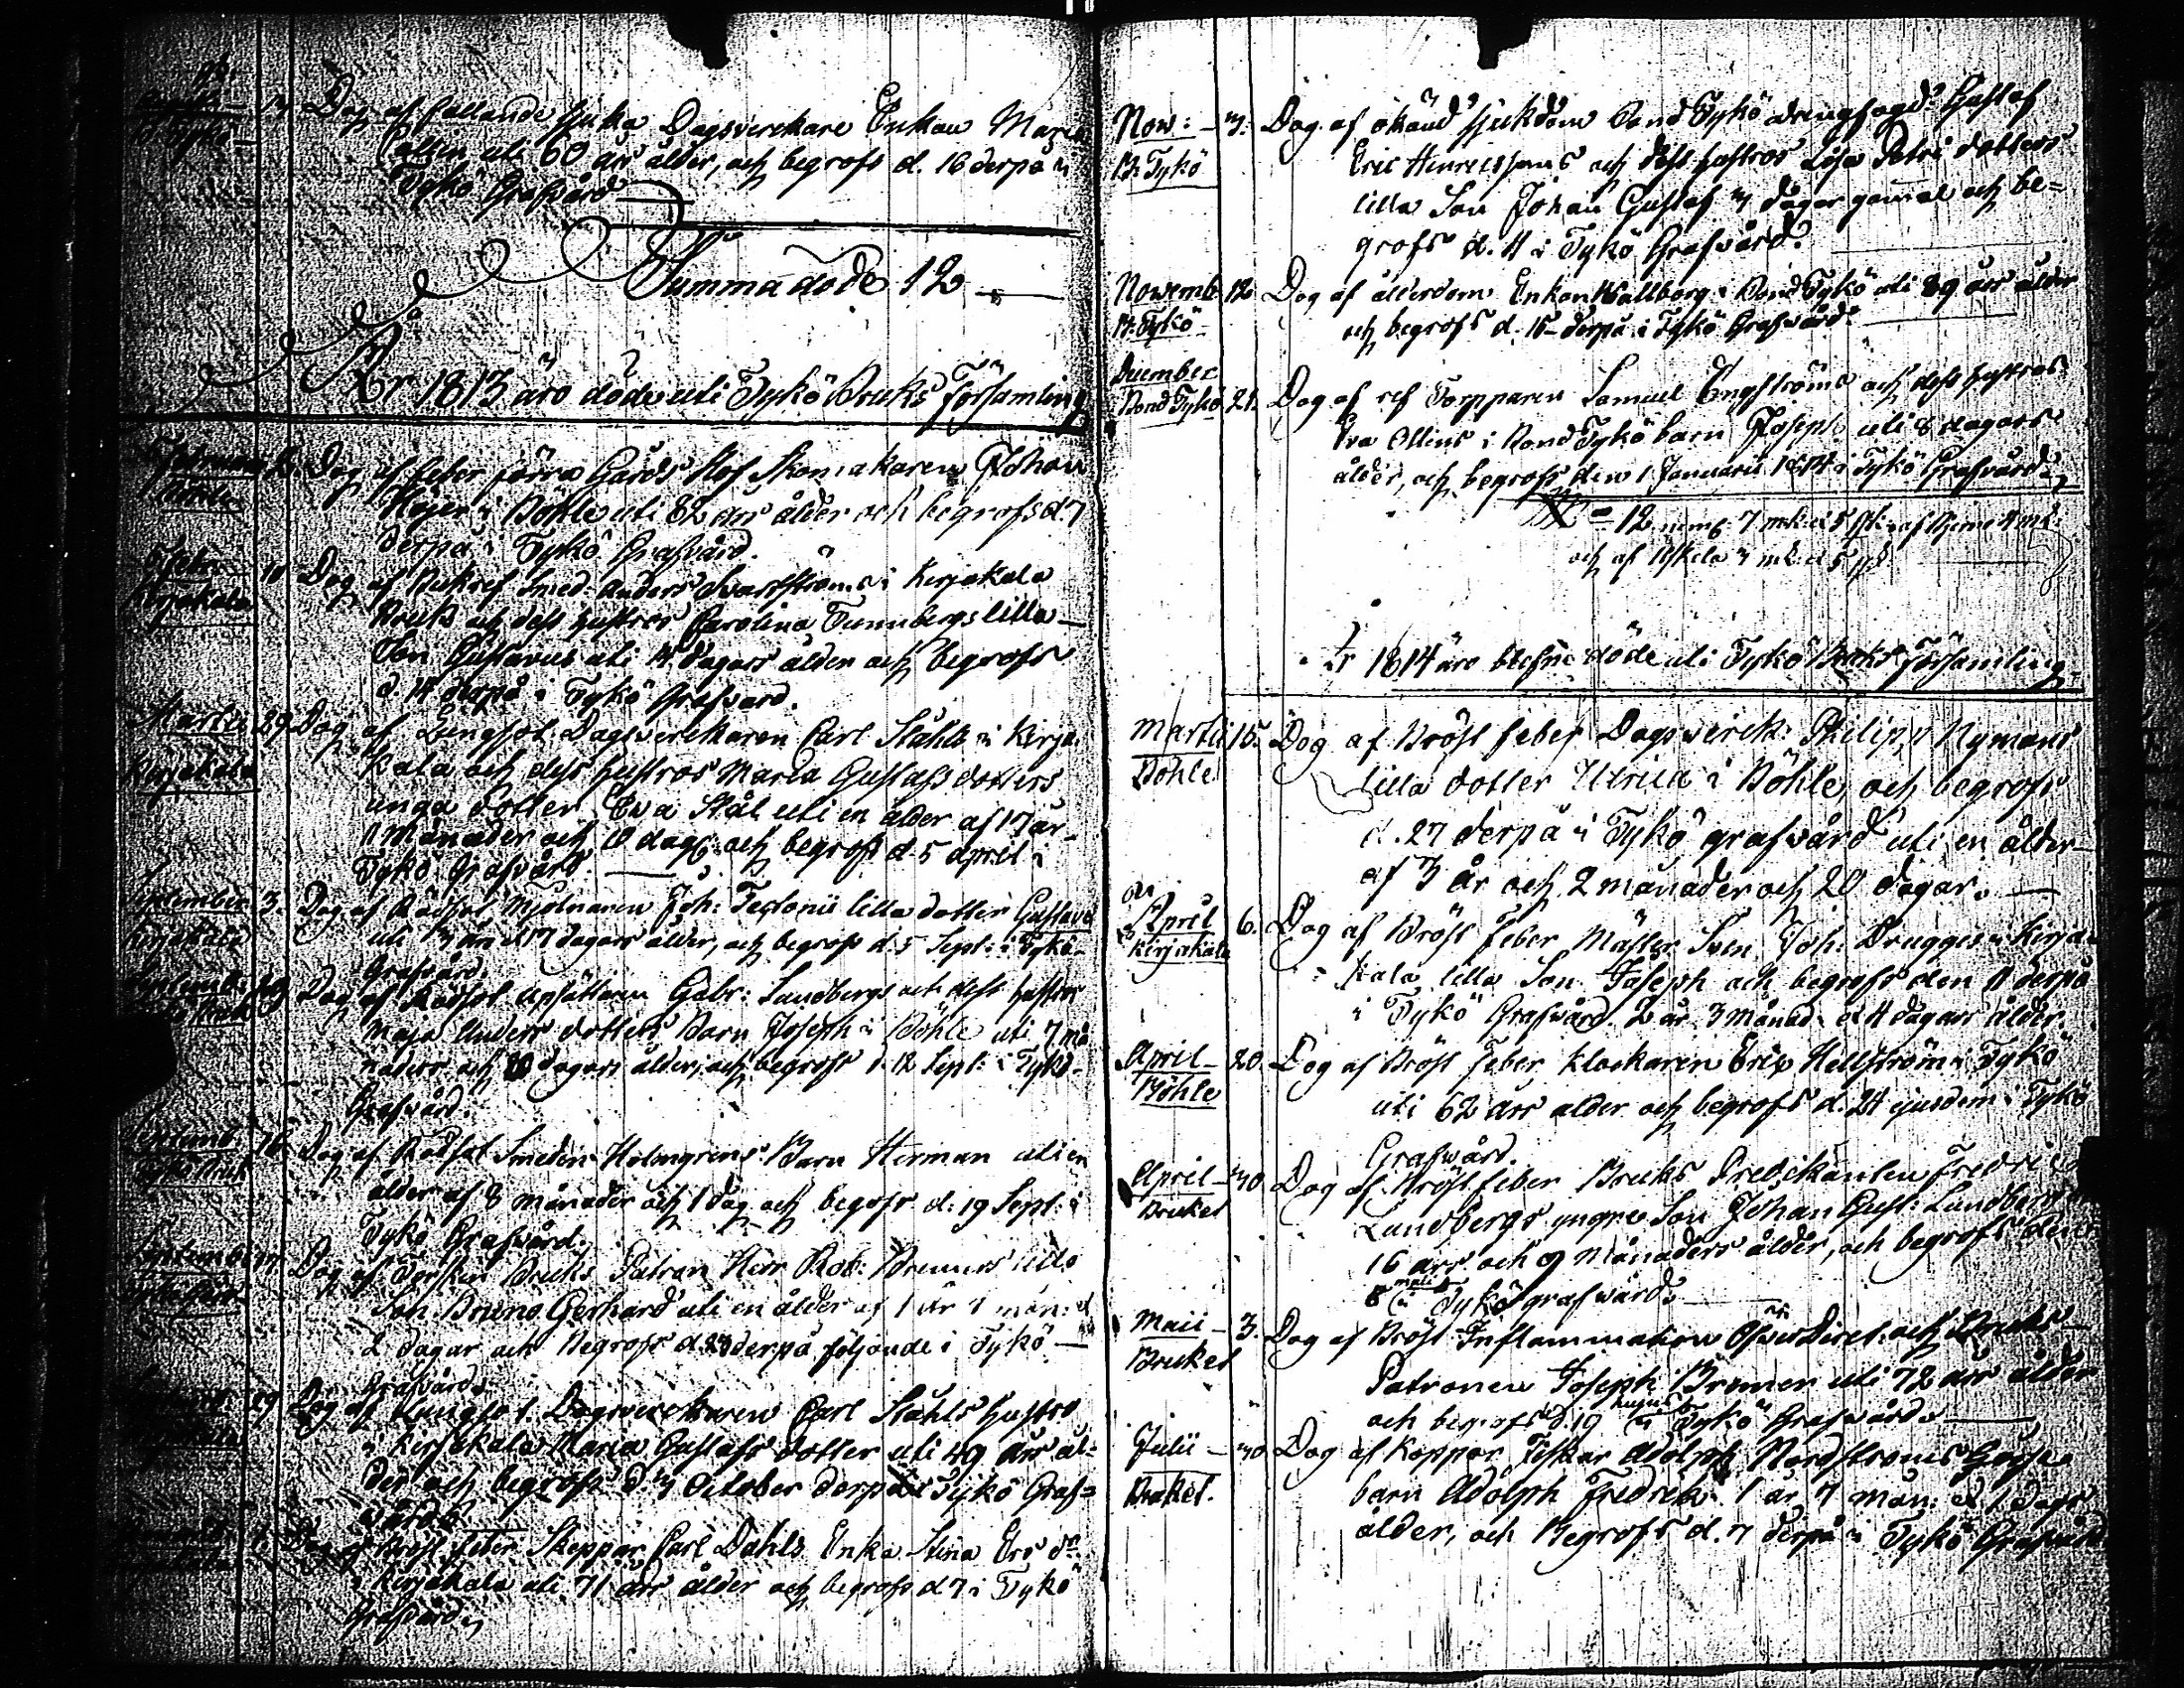 14 Dog af fallande sjuka Dagsverckare Enkan Maria
uti 60 års ålder, och begrofs d. 16 derpå i
Tykö Grafvård
Summa döde 12
År 1813 äro döde uti Tykö Bruks Församling
Dog af feber förra Gårds Hof Skomakaren Johan
Höijer i Böhle uti 82 års ålder och begrofs d. 7
derpå i Tykö Grafvård.
Febr: 10 Dog af Smed Anders Svartströms i Kirjakala
Bruk och dess hustros Carolina Tunnbergs lilla
Son Gustavus uti 14 dagars ålder och begrofs
d. 14 derpå i Tykö Grafvård.
Martii 29 Dog af Lungsot Dagsverckaren Carl Ståhls i Kirja-
Kirjakala kala och dess hustros Maria Gustafsdotters
unga dotter Eva Stål uti en ålder af 17 år
månader och 10 dag: och begrofs d. 5 April i
Tykö Grafvård.
September 3. Dog af Rödsot Mjölnaren Joh: lilla dotter Gustava
Kirjakala uti 3 år et 17 dagars ålder, och begrofs d. 5 Sept: i Tykö
Grafvård.
Dog af Rödsot Upsättaren Gabr: Sundbergs och dess hustros
Maja Anders dotters Barn Joseph i Böhle uti 7 må-
naders och 10 dagars ålder, och begrofs d. 12 Sept: i Tykö
Grafvård.
Septemb. 16 Dog af Rödsot Smeden Holmgrens Barn Herman uti en
Tykö Bruk ålder af 8 månader och 1 dag och begrofs d. 19 Sept: i
Tykö Grafvård.
Septemb: 17 Dog af Bruks Patron Herr Rob: Bremers lilla
Son Bruno Gerhard uti en ålder af 1 år 1 mån: et
2 dagar och Begrofs d. 23 derpå följande i Tykö
Grafvård.
29 Dog af Lungsot Dagsverckaren Carl Ståhls hustro
i Kirjakala Maria Gustafs dotter uti 49 års ål-
der och begrofs d. 3 October derpå i Tykö Graf-
vård.
Dog af Bröst feber Skeppar Carl Dahls Enka Stina Ers dr
i Kirjakala uti 71 års ålder och begrofs d. 7 i Tykö
Grafvård.
Now: 3. Dog af okänd sjukdom Bond Tykö drengfogd: Gustaf
B: Tykö Eric Henricssons och dess hustros Lisa Petri dotters
lilla Son Johan Gustaf 3 dagar gamal och be-
grofs d. 11 i Tykö Grafvård.
Novemb 12 Dog af ålderdom Enkan Wallborg i Bond Tykö uti 89 års ålder
B. Tykö och begrofs d. 15 derpå i Tykö Grafvård.
December
Bond Tykö 21. Dog af ref Torpparen Samuel Engströms och dess hustros
Eva Ollins i Bond Tykö barn Joseph uti 8 dagars
ålder, och begrofs den 1 Januarii 1814 i Tykö Grafvård.
12 nemb: 7 mk: et 5 qk: af Bjerno 4 mk:
och af Uskela 3 mk: et 5 qk:
År 1814 äro blefne döde uti Tykö Bruks Församling
Martii 15. Dog af Bröst feber Dagsverck: Philipp Nymans
Böhle lilla dotter Ulrica i Böhle, och begrofs
d. 27 derpå i Tykö grafvård uti en ålder
af 3 år och 2 månader och 20 dagar.
April 6. Dog af Bröst feber Mäster Sven Joh: Drugges i Kirja-
Kirjakala kala lilla Son Joseph och begrofs den 11 derpå
i Tykö Grafvård 2 år 3 månad et 4 dagars ålder.
April 20. Dog af Bröst feber Klockaren Eric Hellström i Tykö
Böhle uti 62 års ålder och begrofs d. 24 ejusdem i Tykö
Grafvård.
April 30 Dog af Bröst feber Bruks Predikanten Fredric
Bruket Lundbergs yngre Son Johan Gust: Lundberg
16 års och 9 månaders ålder, och begrofs den
8 maii i Tykö grafvård.
Maii 3. Dog af Bröst Inflammation Öfver Direct: och Bruks
Bruket Patronen Joseph Bremer uti 72 års ålder
och begrofs d. 19 hujus i Tykö Grafvård.
Julii 30 Dog af koppor Fiskar Adolph Nordströms Gosse
Bruket. barn Adolph Fredrik 1 år 7 mån: et 1 dags
ålder, och Begrofs d. 7 derpå i Tykö Grafvård